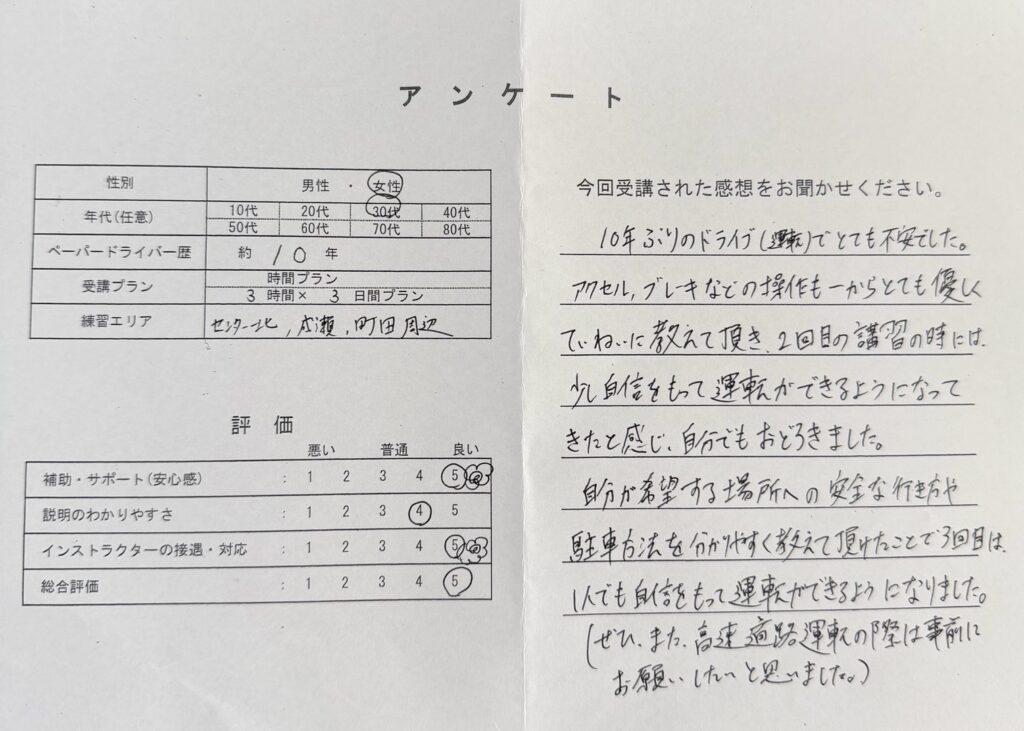 アンケート
性別 男性 ・ 女性
年代(任意) 10代 20代 30代 40代
50代 60代 70代 80代
ペーパードライバー歴 約 10 年
受講プラン 時間プラン
3 時間× 3 日間プラン
練習エリア センター北, 成瀬, 町田周辺
評価
悪い 普通 良い
補助・サポート(安心感) : 1 2 3 4 5
説明のわかりやすさ : 1 2 3 4 5
インストラクターの接遇・対応 : 1 2 3 4 5
総合評価 : 1 2 3 4 5
今回受講された感想をお聞かせください。
10年ぶりのドライブ(運転)でとても不安でした。
アクセル, ブレーキなどの操作も一からとても優しく
ていねいに教えて頂き、2回目の講習の時には、
少し自信をもって運転ができるようになって
きたと感じ、自分でもおどろきました。
自分が希望する場所への安全な行き方や
駐車方法を分かりやすく教えて頂けたことで3回目は、
1人でも自信をもって運転ができるようになりました。
(ぜひ、また、高速道路運転の際は事前に
お願いしたいと思いました。)